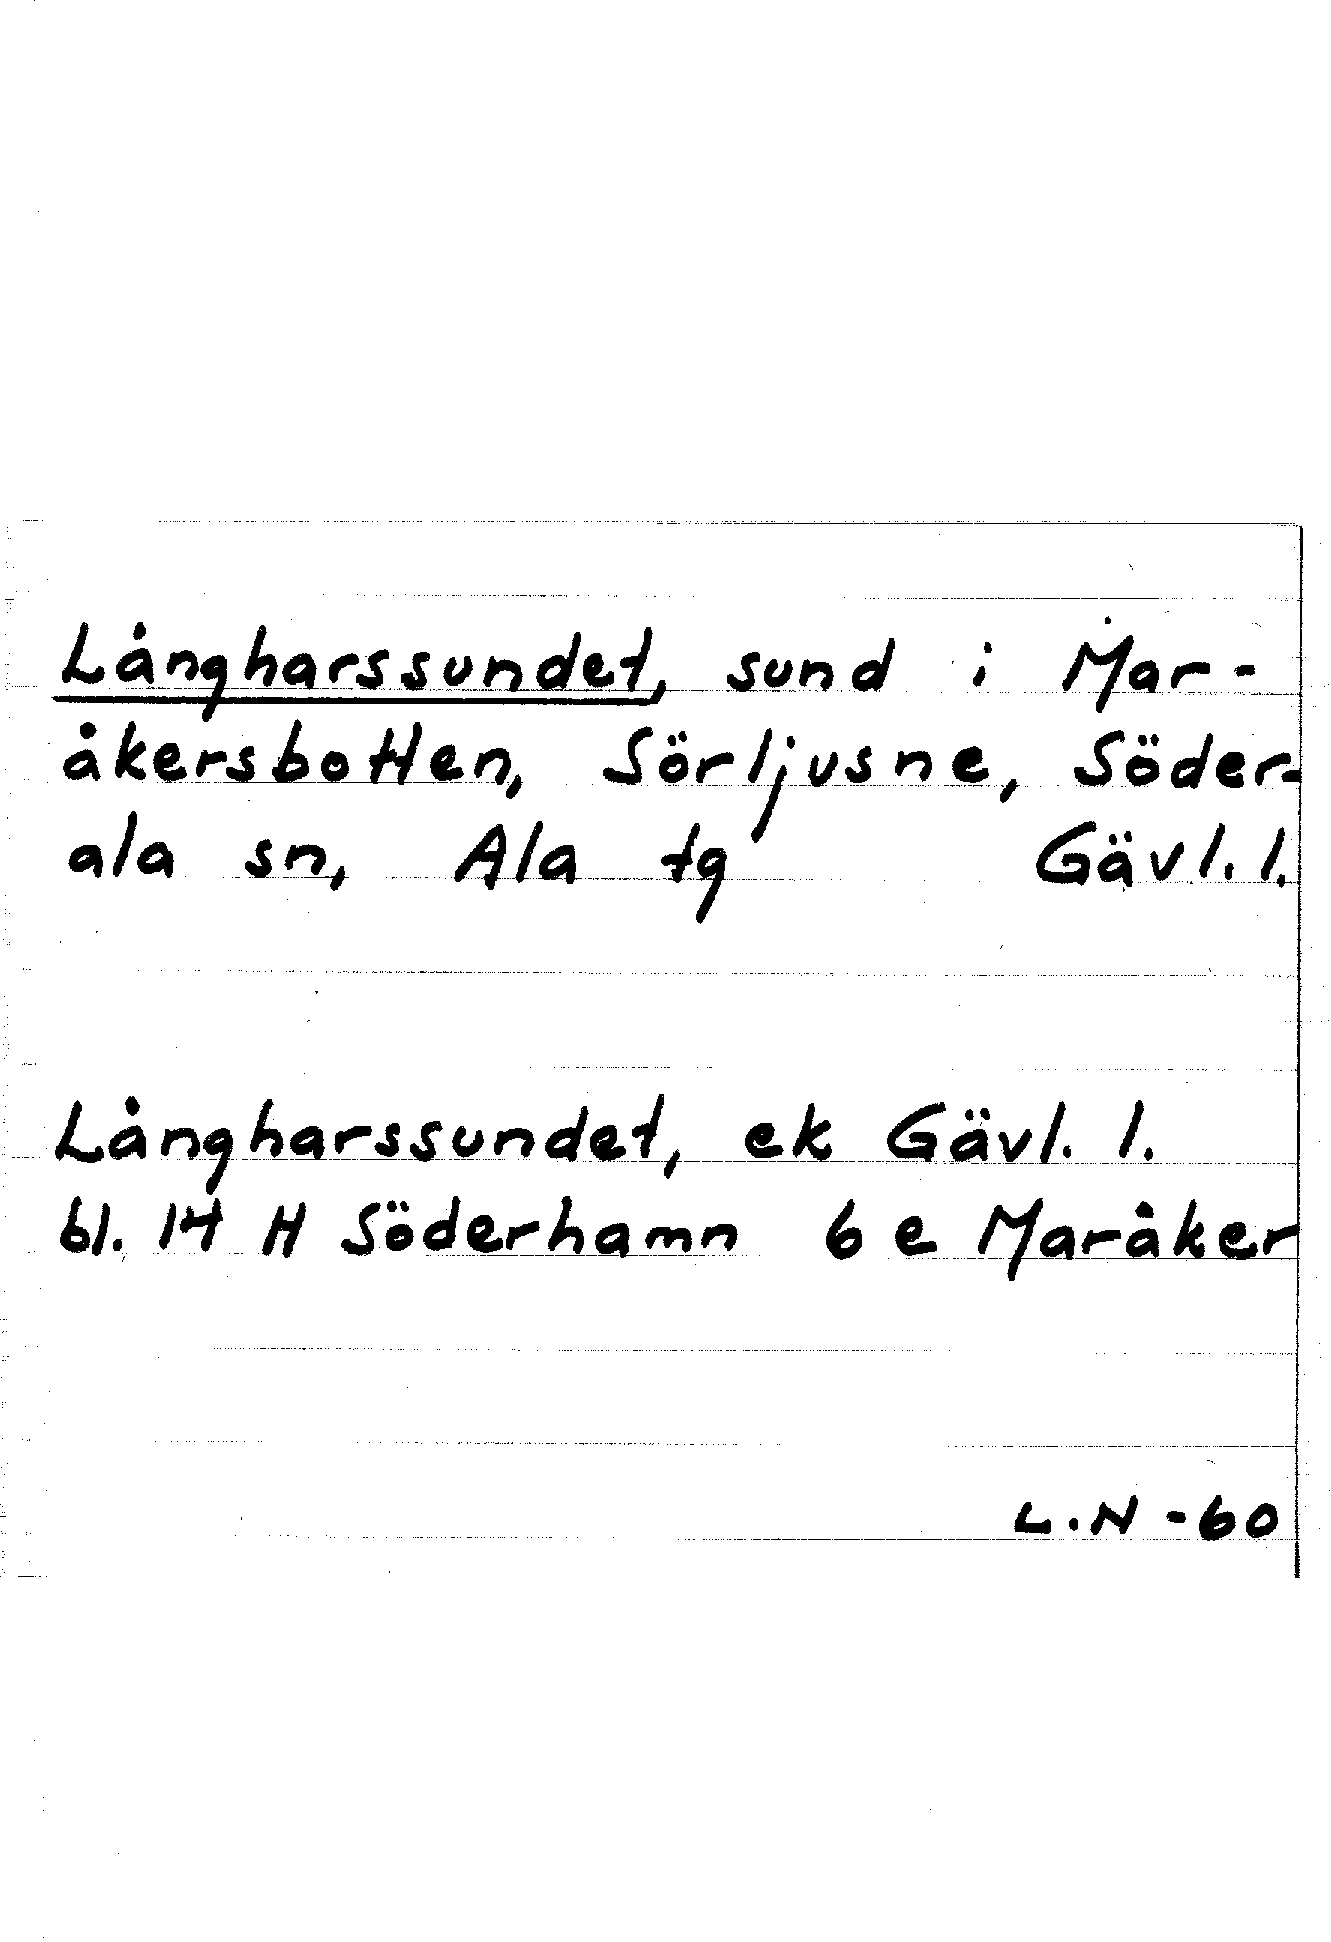 Långharssundet, sund i Mar-
åkersbotten, Sörljusne, Söder-
ala sn, Ala tg Gävl. l.
Långharssundet, ek Gävl. l.
bl. 14 H Söderhamn 6 e Maråker
L.N -60